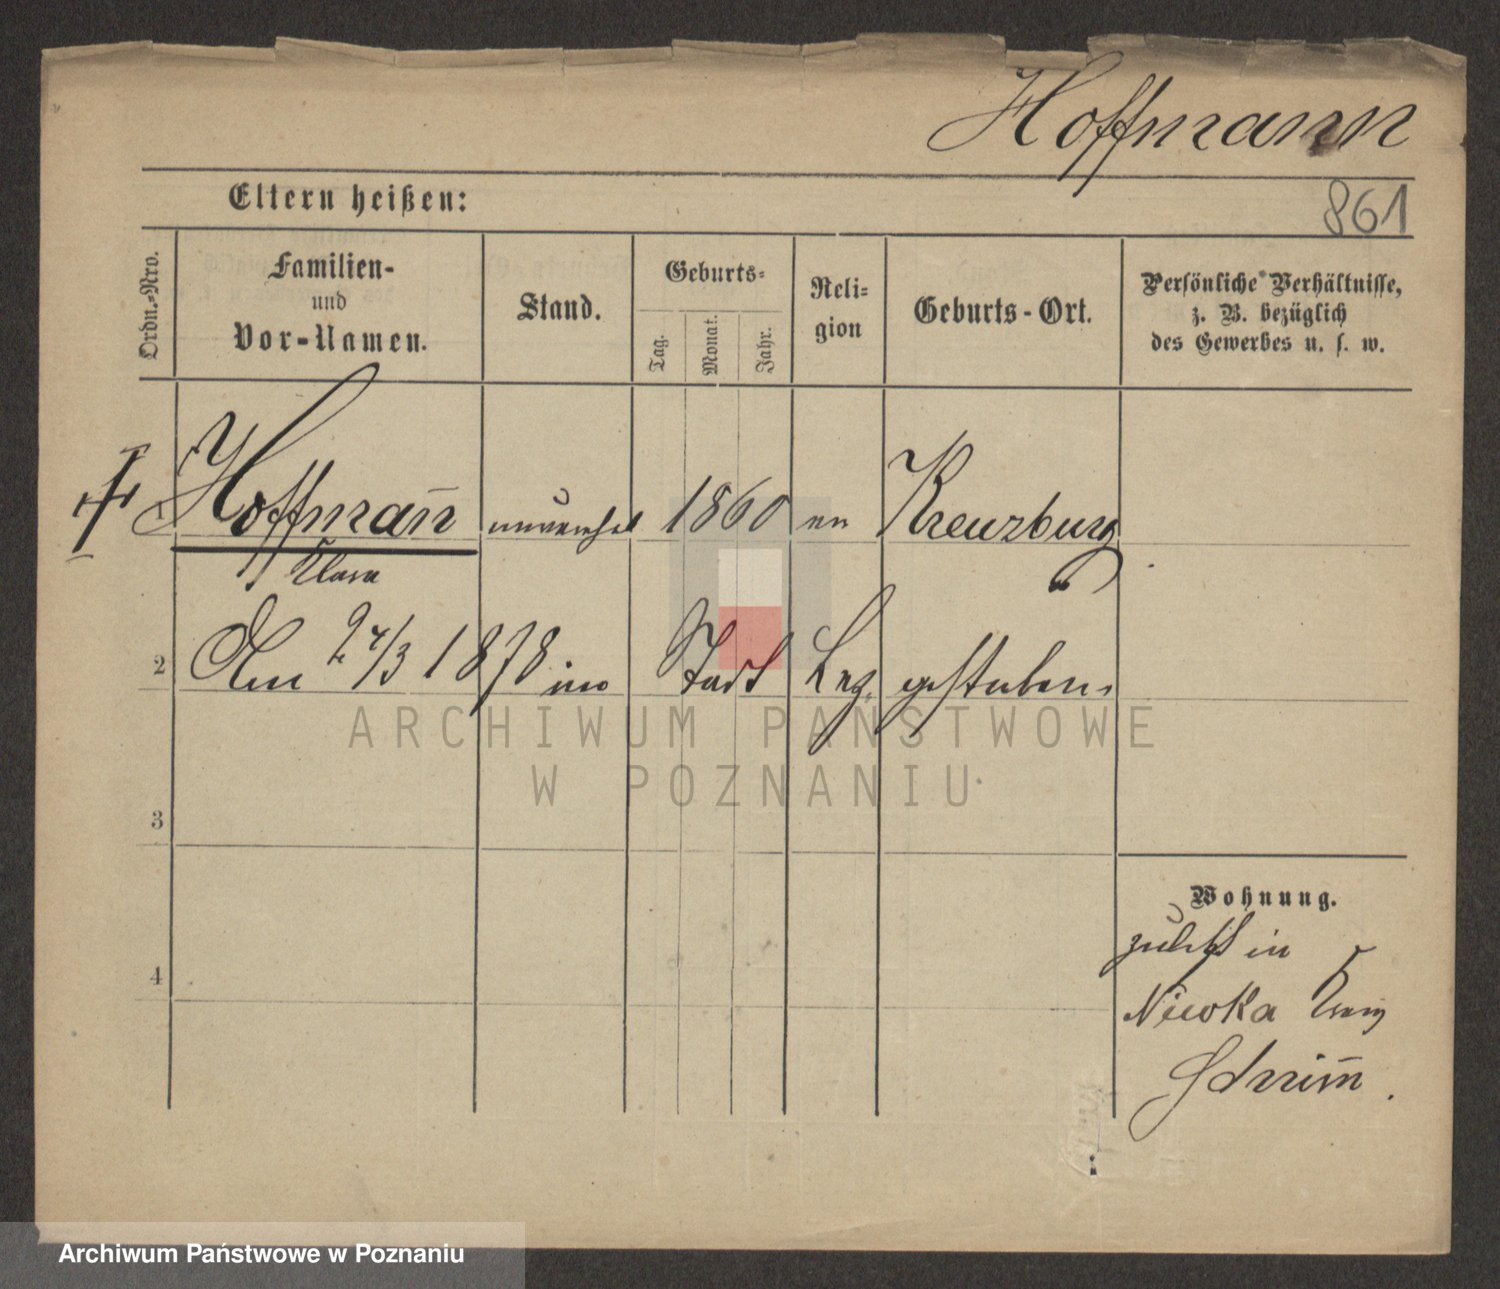 Hoffmann
Eltern heißen:
861
Ordn.-Nro.
Familien-
und
Vor-Namen.
Stand.
Geburts-
Tag.
Monat.
Jahr.
Reli-
gion
Geburts-Ort.
Persönliche Verhältnisse,
z. B. bezüglich
des Gewerbes u. s. w.
1 Hoffmann̄ unverehel 1860 ev Kreuzburg
Klara
2 Am 24/3 1878 im Stadt Laz. gestorben.
3
4
Wohnung.
zuletzt in
Niwka
Schrim̄.
ARCHIWUM PAŃSTWOWE
W POZNANIU
Archiwum Państwowe w Poznaniu